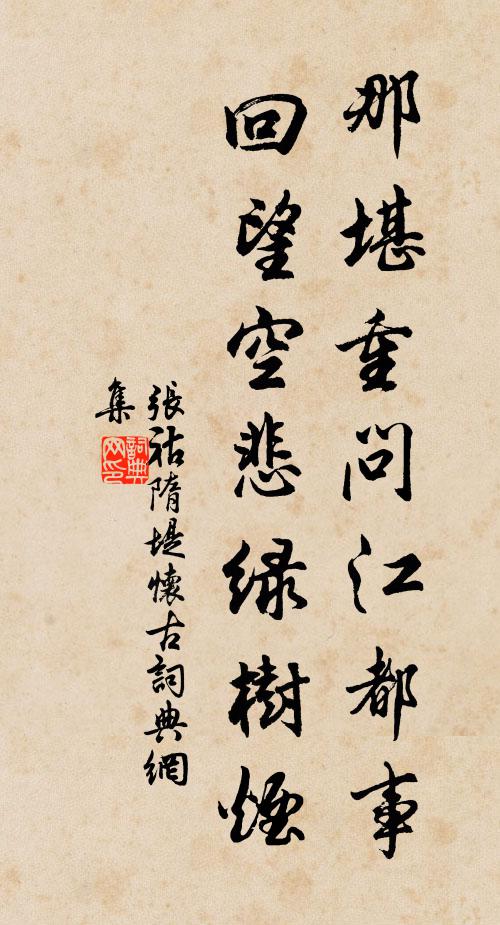 那堪重問江都事
回望空悲綠樹煙
張祜隋堤懷古詞典網
集
詞典
网印